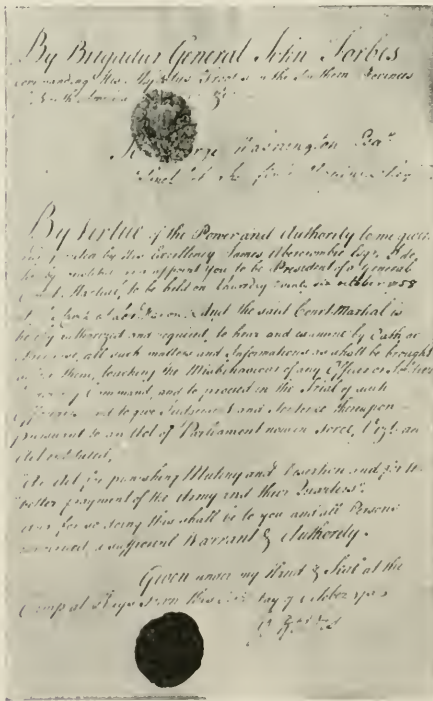 By Brigadier General John Forbes
commanding His Majesties Troops in the Southern Provinces
of North America &c
To George Washington Esqr
of the first Virginia
By Virtue of the Power and Authority to me given
by His Excellency James Abercrombie Esqr I do
hereby appoint you to be President of a General
Court Martial, to be held on October 1758
And the said Court Martial is
hereby authorized and required, to hear and examine by Oath or
otherwise, all such matters and Informations as shall be brought
before them, touching the Misbehaviour of any Officer or Soldier
Command, and to proceed in the Trial of such
and to give Judgement and Sentence thereupon
pursuant to an Act of Parliament now in force, an
Act entituled,
"An Act for punishing Mutiny and Desertion and for the
"better payment of the Army and their Quarters".
and for so doing this shall be to you and all Persons
concerned a sufficient Warrant & Authority.
Given under my Hand & Seal at the
Camp at this day of October 1758
Jo Forbes